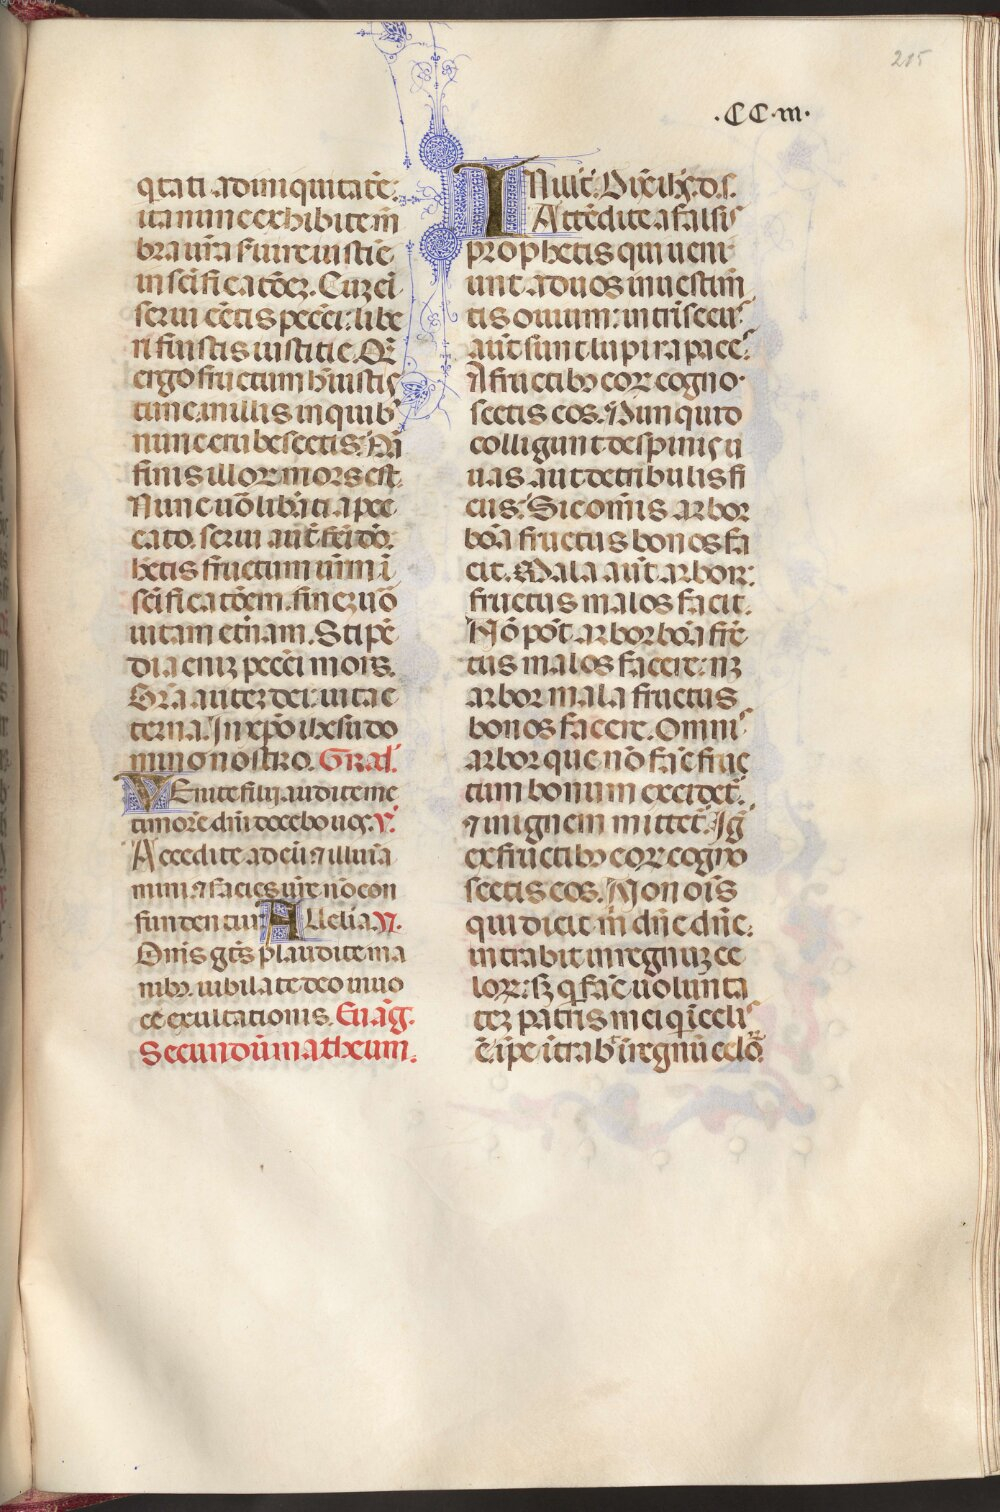 215
.CC.III.
q̄tati ad iniquitatē:
ita nunc exhibite m̄
bra ur̄a ſeruire iustic̄
in sc̄ificatōez. Cuz eī
serui eēēts pecc̄i: libe
ri fuistis iustitie. Qē
ergo fructum h̄uistis
tunc in illis in quib
nunc erubescetis: Nā
finis illoꝝ mors est.
Nunc uō lib̄ati a pec
cato. serui aut̄ fcī dō.
h̄etis fructum ur̄m ī
sc̄ificatōem. finez uō
uitam et̄nam. Stipē
dia eniz pecc̄i mors.
Gr̄a autez dei: uita e
terna. In xp̄o ihesu do
mino nostro. Gral̄.
VEnite filij audite me
timorē dn̄i docebo uos. V.
Accedite ad eū ⁊ illuīa
mini ⁊ facies ur̄e nō con
fundentur Alleluia. V.
Om̄s gēts plaudite ma
nibꝫ. iubilate deo in uo
ce exultationis. Euāg.
Secundū matheum.
IN illo t̄. Dixit ihs. d. s.
Attēdite a falsis
prophetis qui ueni
unt ad uos in uestim̄
tis ouium: intrīsecus
aut̄ sunt lupi rapaces.
A fructibꝫ eoꝝ cogno
scetis eos. Nunquid
colligunt de spinis u
uas aut de tribulis fi
cus: Sic om̄is arbor
bōa fructus bonos fa
cit. Mala aut̄ arbor:
fructus malos facit.
Nō pōt arbor bōa frc̄
tus malos facere: nꝫ
arbor mala fructus
bonos facere. Omnis
arbor que nō fac̄ fruc
tum bonum excidet̄.
⁊ in ignem mittet̄. Iḡ
ex fructibꝫ eoꝝ cogno
scetis eos. Non oīs
qui dicit m̄ dn̄e dn̄e:
intrabit in regnuz ce
loꝝ: sꝫ q̄ fac̄ uolunta
tez patris mei q̄ ī celis
ē. ip̄e ītrab̄ ī regnū celoꝝ